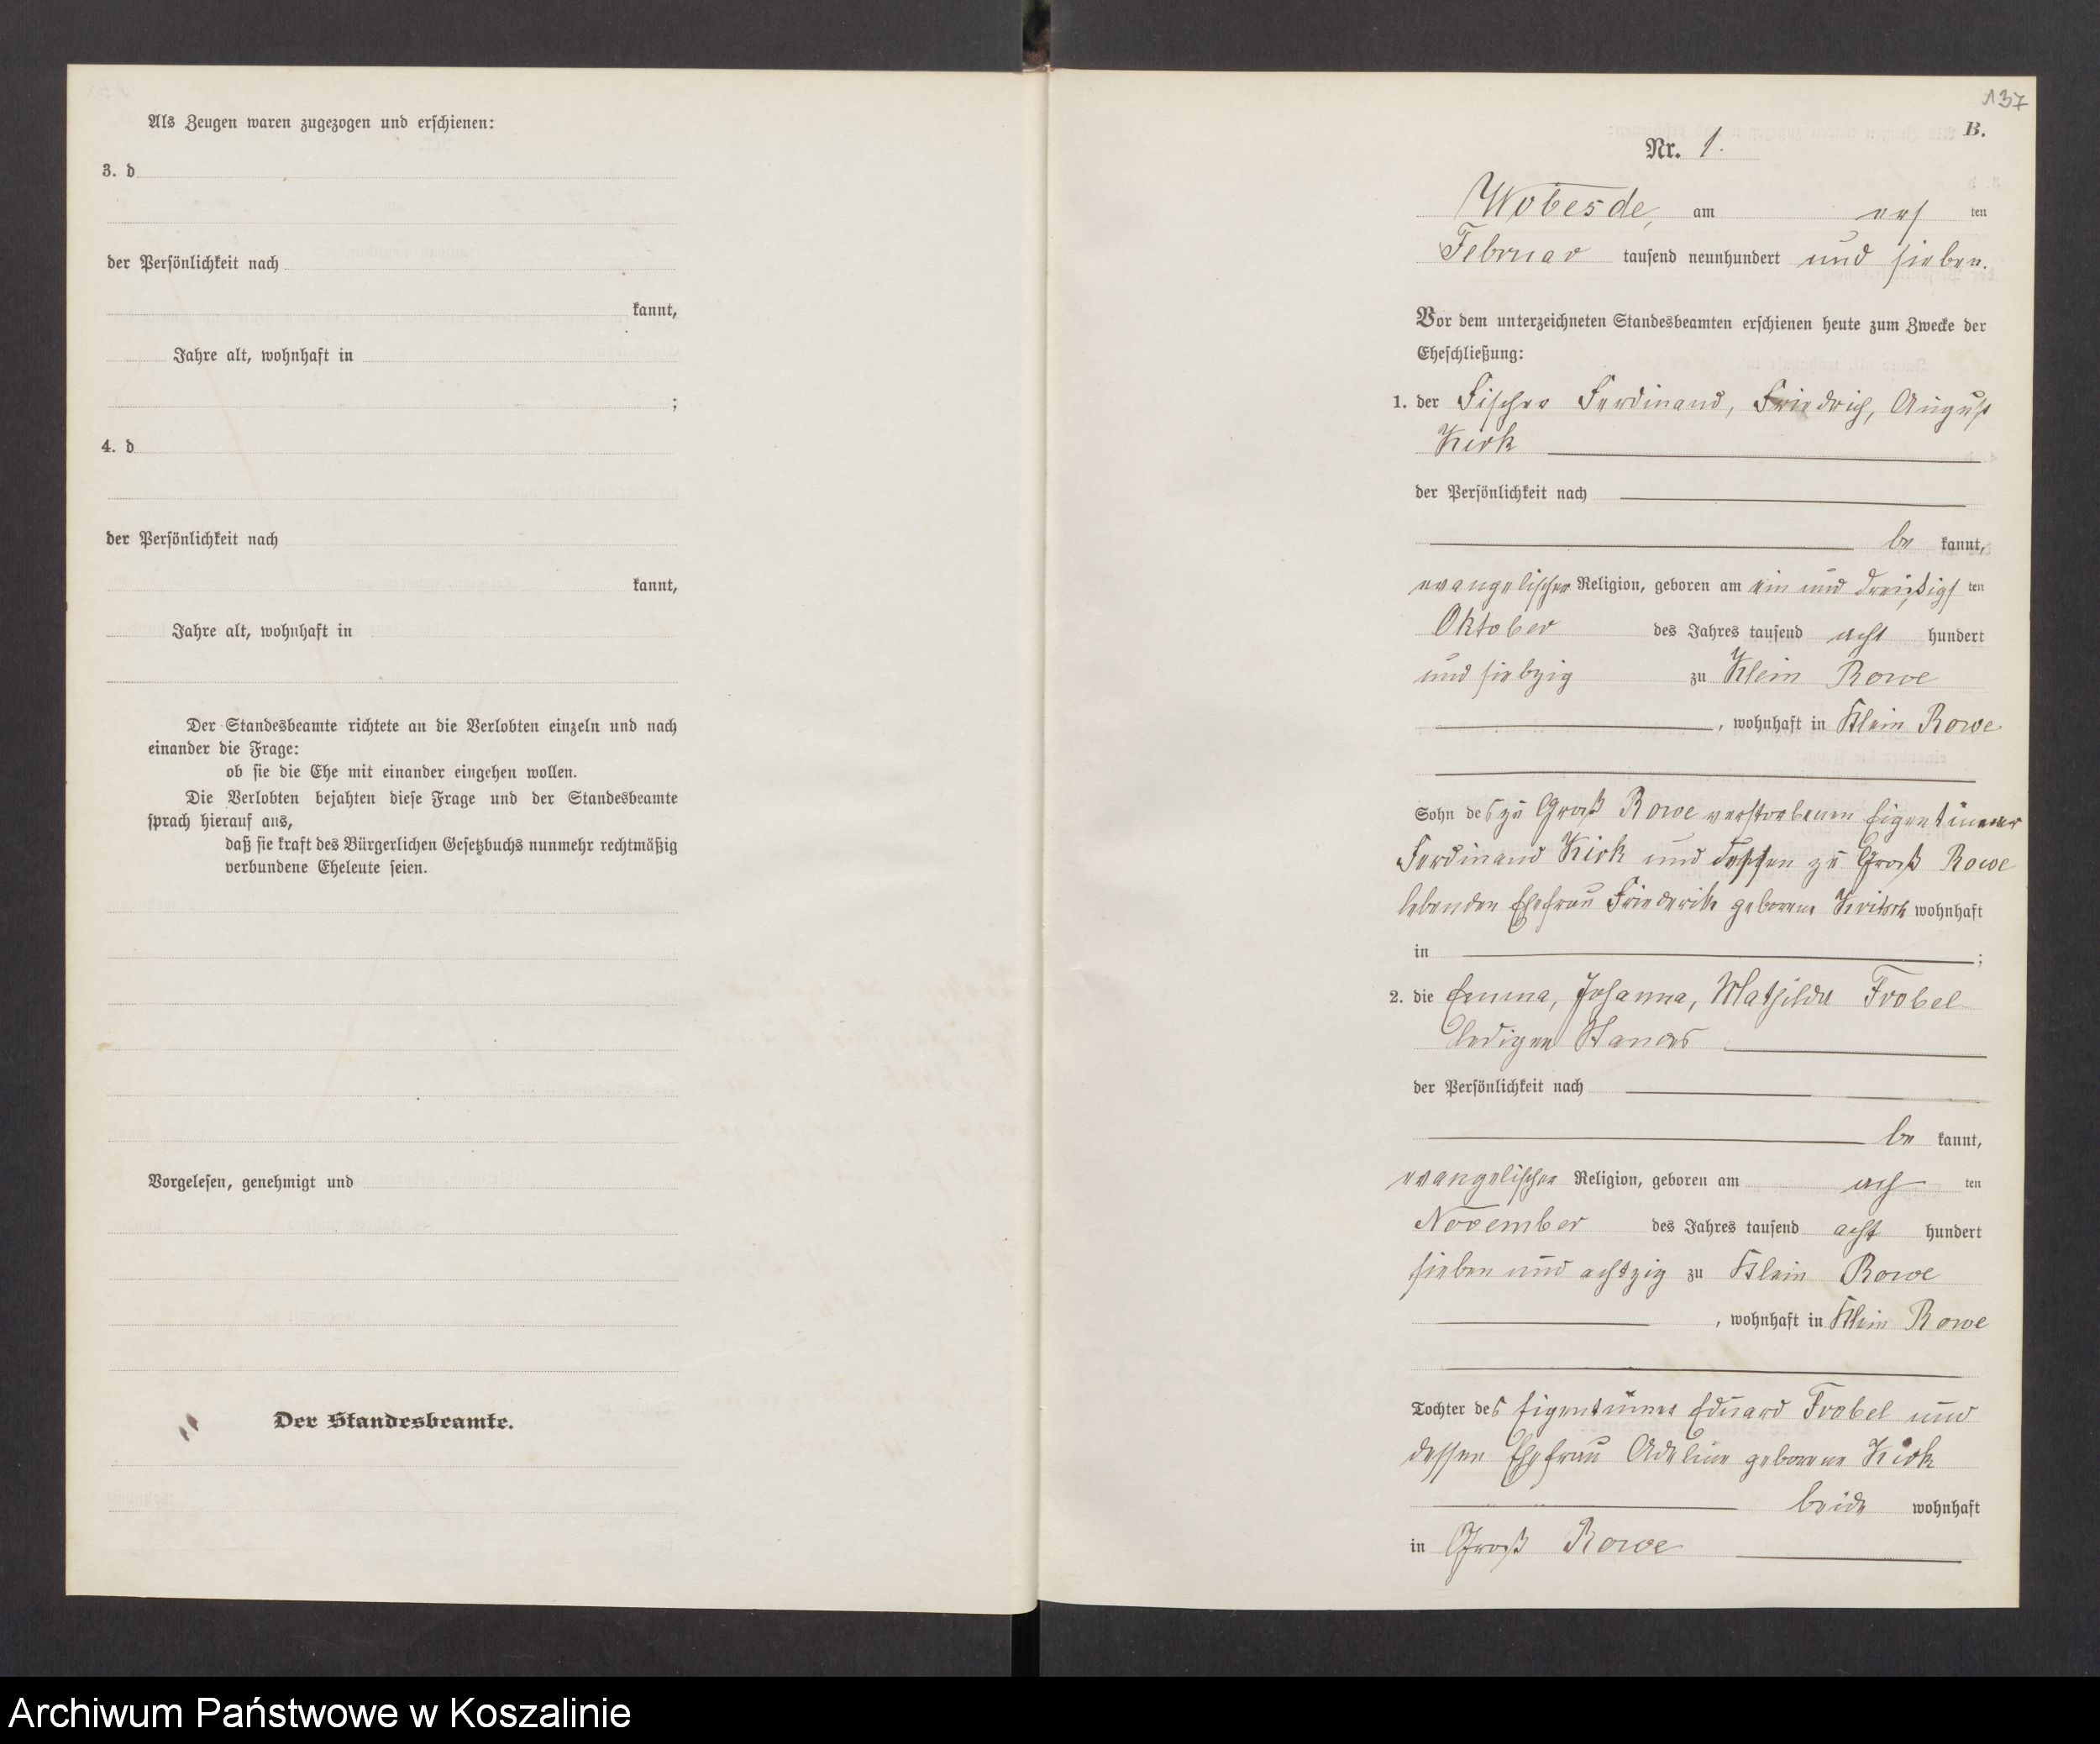 Als Zeugen waren zugezogen und erschienen:
3. d
der Persönlichkeit nach
kannt,
Jahre alt, wohnhaft in
;
4. d
der Persönlichkeit nach
kannt,
Jahre alt, wohnhaft in
Der Standesbeamte richtete an die Verlobten einzeln und nach
einander die Frage:
ob sie die Ehe mit einander eingehen wollen.
Die Verlobten bejahten diese Frage und der Standesbeamte
sprach hierauf aus,
daß sie kraft des Bürgerlichen Gesetzbuchs nunmehr rechtmäßig
verbundene Eheleute seien.
Vorgelesen, genehmigt und
Der Standesbeamte.
137
B.
Nr. 1.
Wobesde, am ten
Februar tausend neunhundert und sieben.
Vor dem unterzeichneten Standesbeamten erschienen heute zum Zwecke der
Eheschließung:
1. der Fischer Ferdinand, Friedrich, August
Kirk
der Persönlichkeit nach
be kannt,
evangelischer Religion, geboren am ein und dreißigs ten
Oktober des Jahres tausend acht hundert
und siebzig zu Klein Rowe
, wohnhaft in Klein Rowe
Sohn des zu Groß Rowe verstorbenen Eigentümer
Ferdinand Kirk und dessen zu Groß Rowe
lebenden Ehefrau Friederike geborene wohnhaft
in ;
2. die Emma, Johanna, Mathilde Frobel
ledigen Standes
der Persönlichkeit nach
be kannt,
evangelischer Religion, geboren am ach ten
November des Jahres tausend acht hundert
sieben und achtzig zu Klein Rowe
, wohnhaft in Klein Rowe
Tochter des Eigentümer Eduard Frobel und
dessen Ehefrau Adeline geborene Kirk
beide wohnhaft
in Groß Rowe
Archiwum Państwowe w Koszalinie